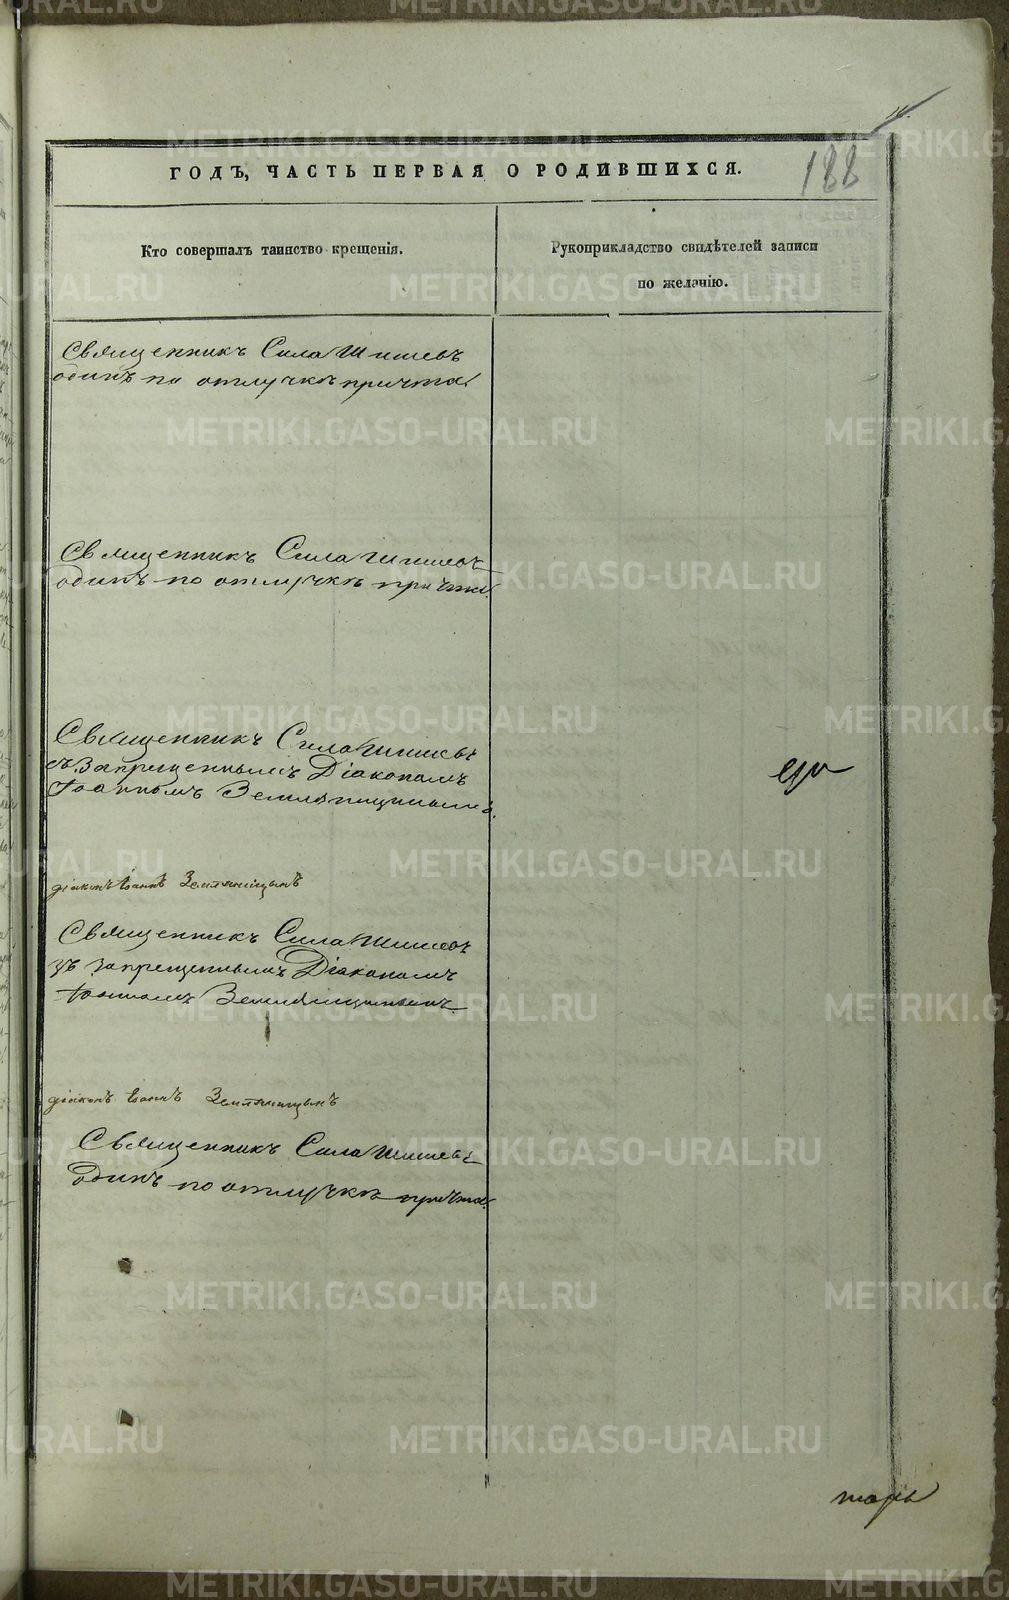 188
ГОДЪ, ЧАСТЬ ПЕРВАЯ О РОДИВШИХСЯ.
Кто совершалъ таинство крещенія.
Рукоприкладство свидѣтелей записи
по желанію.
Священникъ Сила Шишевъ
одинъ по отлучкѣ причта.
Священникъ Сила Шишевъ
одинъ по отлучкѣ причта.
Священникъ Сила Шишевъ
съ запрещеннымъ Діакономъ
Іоанномъ Земляницинымъ.
діаконъ Іоаннъ Земляницынъ
Священникъ Сила Шишевъ
съ запрещеннымъ Діакономъ
Іоанномъ Земляницинымъ
діаконъ Іоаннъ Земляницынъ
Священникъ Сила Шишевъ
одинъ по отлучкѣ причта.
METRIKI.GASO-URAL.RU